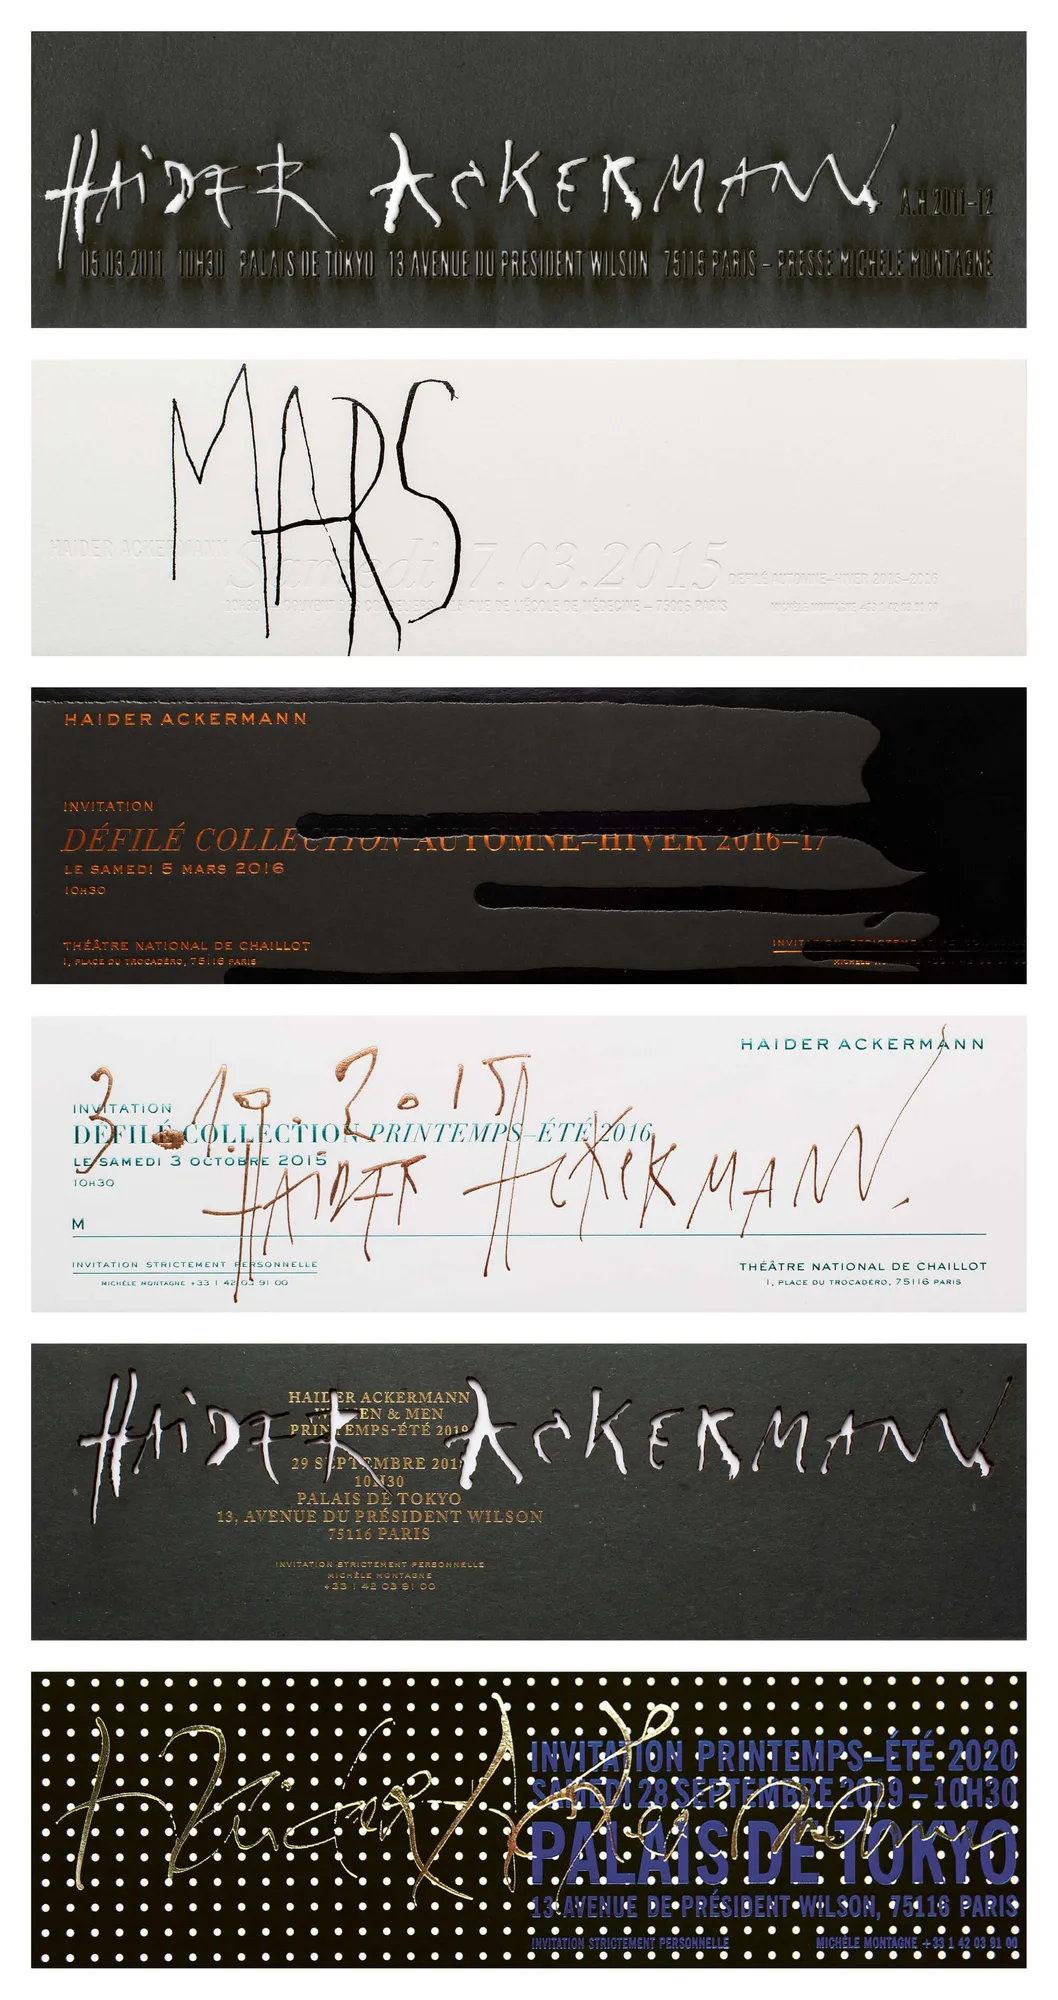 HAIDER ACKERMANN
A.H 2011–12
05.03.2011 10H30 PALAIS DE TOKYO 13 AVENUE DU PRESIDENT WILSON 75116 PARIS – PRESSE MICHELE MONTAGNE
MARS
HAIDER ACKERMANN
Samedi 7.03.2015
DÉFILÉ AUTOMNE–HIVER 2015–2016
10H30 – COUVENT DES CORDELIERS – 15 RUE DE L'ÉCOLE DE MÉDECINE – 75006 PARIS
MICHÈLE MONTAGNE +33 1 42 03 91 00
HAIDER ACKERMANN
INVITATION
DÉFILÉ COLLECTION AUTOMNE–HIVER 2016–17
LE SAMEDI 5 MARS 2016
10H30
THÉÂTRE NATIONAL DE CHAILLOT
1, PLACE DU TROCADÉRO, 75116 PARIS
HAIDER ACKERMANN
3.10.2015
INVITATION
DÉFILÉ COLLECTION PRINTEMPS–ÉTÉ 2016
LE SAMEDI 3 OCTOBRE 2015
10H30
HAIDER ACKERMANN.
M
INVITATION STRICTEMENT PERSONNELLE
MICHÈLE MONTAGNE +33 1 42 03 91 00
THÉÂTRE NATIONAL DE CHAILLOT
1, PLACE DU TROCADÉRO, 75116 PARIS
HAIDER ACKERMANN
HAIDER ACKERMANN
WOMEN & MEN
PRINTEMPS-ÉTÉ 2019
29 SEPTEMBRE 201
10H30
PALAIS DE TOKYO
13, AVENUE DU PRÉSIDENT WILSON
75116 PARIS
INVITATION STRICTEMENT PERSONNELLE
MICHÈLE MONTAGNE
+33 1 42 03 91 00
Haider Ackermann
INVITATION PRINTEMPS–ÉTÉ 2020
SAMEDI 28 SEPTEMBRE 2019 – 10H30
PALAIS DE TOKYO
13 AVENUE DE PRÉSIDENT WILSON, 75116 PARIS
INVITATION STRICTEMENT PERSONNELLE
MICHÈLE MONTAGNE +33 1 42 03 91 00